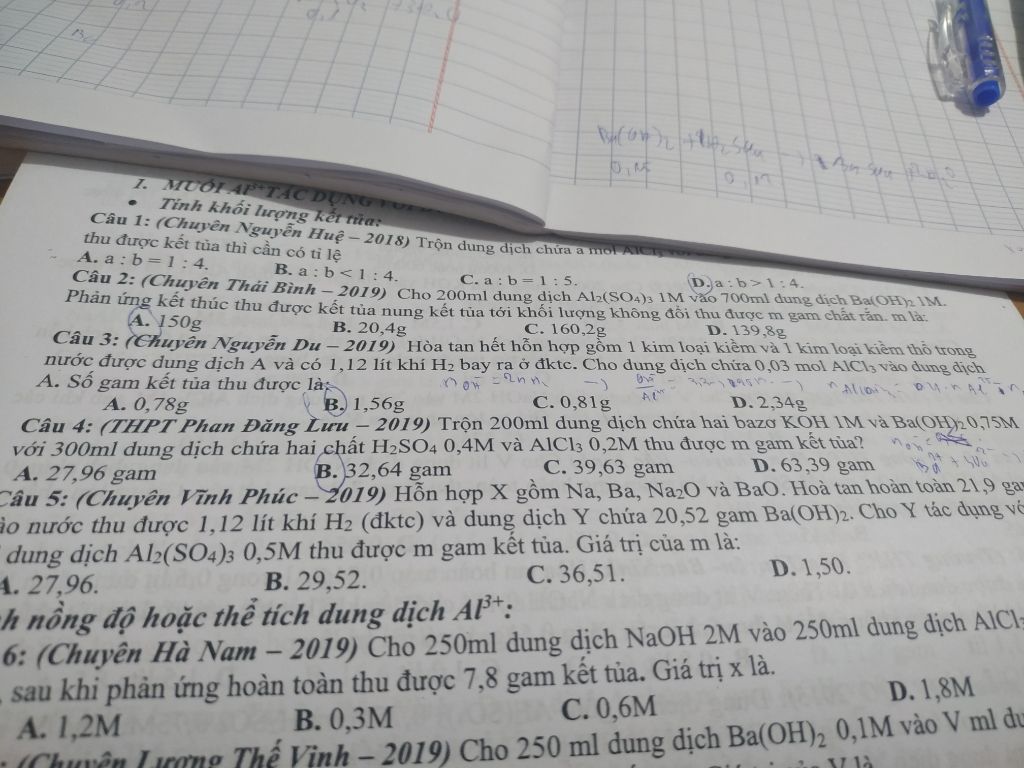 Ba(OH)₂ + H₂SO₄ →
I. MUỐI Al³⁺ TÁC DỤNG VỚI
• Tính khối lượng kết tủa:
Câu 1: (Chuyên Nguyễn Huệ – 2018) Trộn dung dịch chứa a mol AlCl₃
thu được kết tủa thì cần có tỉ lệ
A. a : b = 1 : 4. B. a : b < 1 : 4. C. a : b = 1 : 5. D. a : b > 1 : 4.
Câu 2: (Chuyên Thái Bình – 2019) Cho 200ml dung dịch Al₂(SO₄)₃ 1M vào 700ml dung dịch Ba(OH)₂ 1M.
Phản ứng kết thúc thu được kết tủa nung kết tủa tới khối lượng không đổi thu được m gam chất rắn. m là:
A. 150g B. 20,4g C. 160,2g D. 139,8g
Câu 3: (Chuyên Nguyễn Du – 2019) Hòa tan hết hỗn hợp gồm 1 kim loại kiềm và 1 kim loại kiềm thổ trong
nước được dung dịch A và có 1,12 lít khí H₂ bay ra ở đktc. Cho dung dịch chứa 0,03 mol AlCl₃ vào dung dịch
A. Số gam kết tủa thu được là:
A. 0,78g B. 1,56g C. 0,81g D. 2,34g
Câu 4: (THPT Phan Đăng Lưu – 2019) Trộn 200ml dung dịch chứa hai bazơ KOH 1M và Ba(OH)₂ 0,75M
với 300ml dung dịch chứa hai chất H₂SO₄ 0,4M và AlCl₃ 0,2M thu được m gam kết tủa?
A. 27,96 gam B. 32,64 gam C. 39,63 gam D. 63,39 gam
Câu 5: (Chuyên Vĩnh Phúc – 2019) Hỗn hợp X gồm Na, Ba, Na₂O và BaO. Hoà tan hoàn toàn 21,9
nước thu được 1,12 lít khí H₂ (đktc) và dung dịch Y chứa 20,52 gam Ba(OH)₂. Cho Y tác dụng
dung dịch Al₂(SO₄)₃ 0,5M thu được m gam kết tủa. Giá trị của m là:
A. 27,96. B. 29,52. C. 36,51. D. 1,50.
nồng độ hoặc thể tích dung dịch Al³⁺:
6: (Chuyên Hà Nam – 2019) Cho 250ml dung dịch NaOH 2M vào 250ml dung dịch AlCl₃
, sau khi phản ứng hoàn toàn thu được 7,8 gam kết tủa. Giá trị x là.
A. 1,2M B. 0,3M C. 0,6M D. 1,8M
: (Chuyên Lương Thế Vinh – 2019) Cho 250 ml dung dịch Ba(OH)₂ 0,1M vào V ml